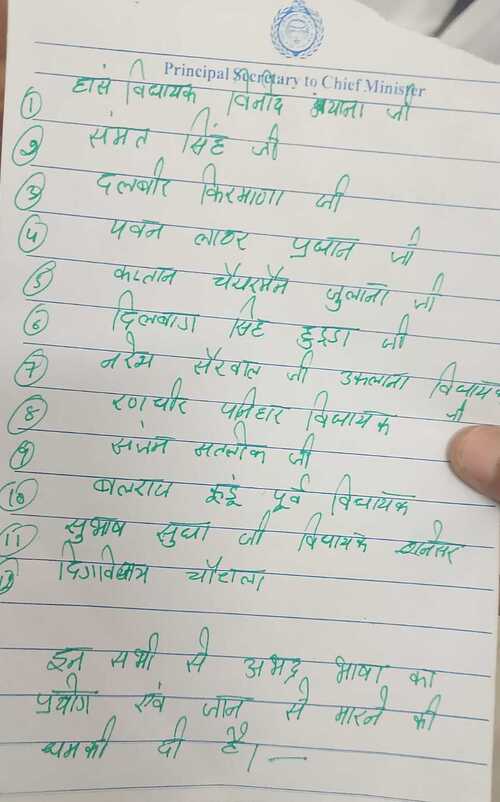 Principal Secretary to Chief Minister
① हांसी विधायक विनोद भयाना जी
② संमत सिंह जी
③ दलबीर किरमाणा जी
④ पवन लाठर प्रधान जी
⑤ कप्तान चैयरमैन जुलाना जी
⑥ दिलबाग सिंह हुड्डा जी
⑦ नरेश सैरवाल जी उकलाना विधायक
⑧ रणधीर पनिहार विधायक जी
⑨ सजन सतलोक जी
⑩ बलराज कुंडू पूर्व विधायक
⑪ सुभाष सुधा जी विधायक थानेसर
दिगविजय चौटाला
इन सभी से अभद्र भाषा का
प्रयोग एवं जान से मारने की
धमकी दी है।—